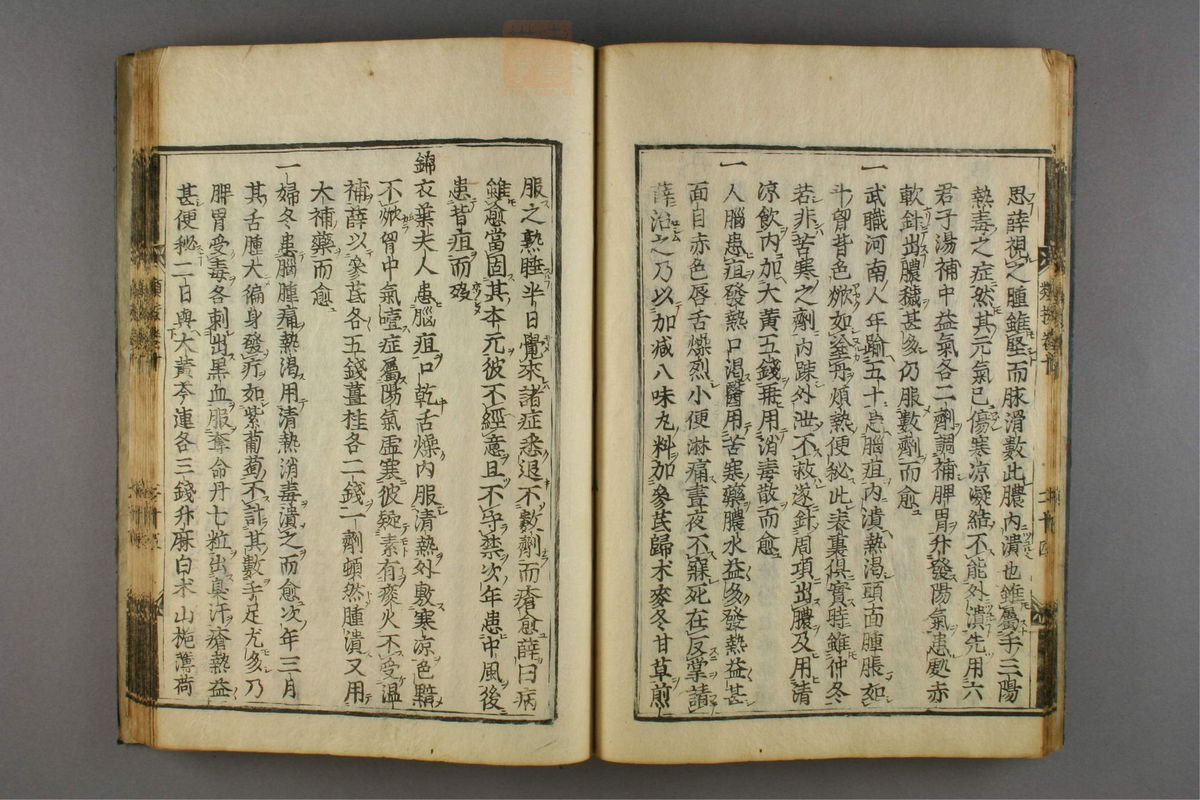 思薛視之腫雖堅而脉滑數此膿內潰也雖屬手三陽
熱毒之症然其元氣已傷寒凉凝結不能外潰先用六
君子湯補中益氣各二劑調補脾胃升發陽氣患處赤
軟針出膿穢甚多仍服數劑而愈
一武職河南人年踰五十患腦疽內潰熱渴頭面腫脹如
斗胷背色焮如塗丹煩熱便秘此表裏俱實時雖仲冬
若非苦寒之劑內疎外泄不救遂針周項出膿及用清
凉飲內加大黃五錢再用消毒散而愈
一人腦患疽發熱口渴醫用苦寒藥膿水益多發熱益甚
面目赤色唇舌燥烈小便淋痛晝夜不寐死在反掌請
薛治之乃以加减八味丸料加參芪歸术麥冬甘草煎
服之熟睡半日覺來諸症悉退不數劑而瘡愈薛曰病
雖愈當固其本元彼不經意且不守禁次年患中風後
患背疽而歿
錦衣葉夫人患腦疽口乾舌燥內服清熱外敷寒凉色黯
不焮胷中氣噎症屬陽氣虛寒彼疑素有痰火不受溫
補薛以參芪各五錢薑桂各二錢一劑頓然腫潰又用
大補藥而愈
一婦冬患腦腫痛熱渴用清熱消毒潰之而愈次年三月
其舌腫大徧身發疔如紫葡萄不計其數手足尤多乃
脾胃受毒各刺出黑血服奪命丹七粒出臭汗瘡熱益
甚便秘二日與大黃芩連各三錢升麻白术山梔薄荷